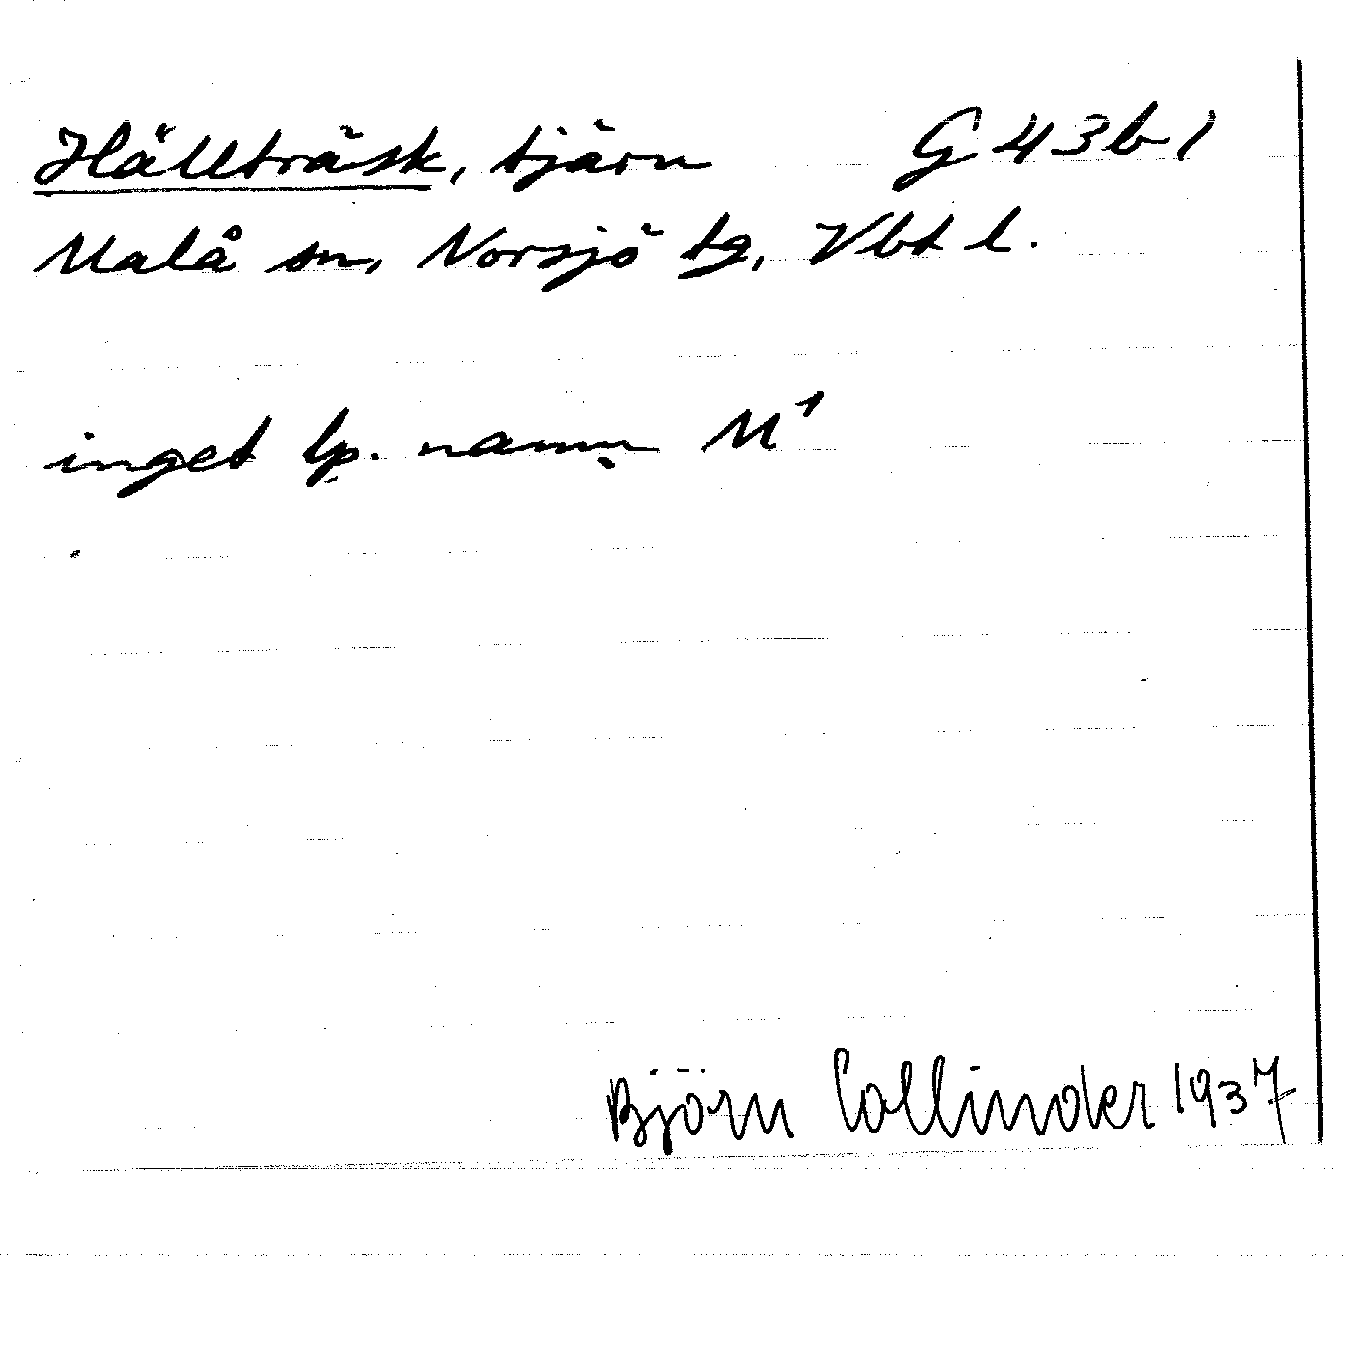 Hällträsk, tjärn G 43 b 1
Malå sn, Norsjö tg, Vbt l.
inget lp. namn M¹
Björn Collinder 1937